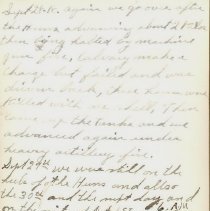 Sept 28-18. again we go over after
the Huns advancing about 2 K. or
then being halted by machine
gun fire, Calvary make a
charge but failed and was
driven back, then Huns were
with our shells, Then
comes up the tanks and we
advanced again under
heavy artillery fire.
Sept 29th we were still on the
heels of the Huns and allso
the 30th and the next day and
on the 6 AM